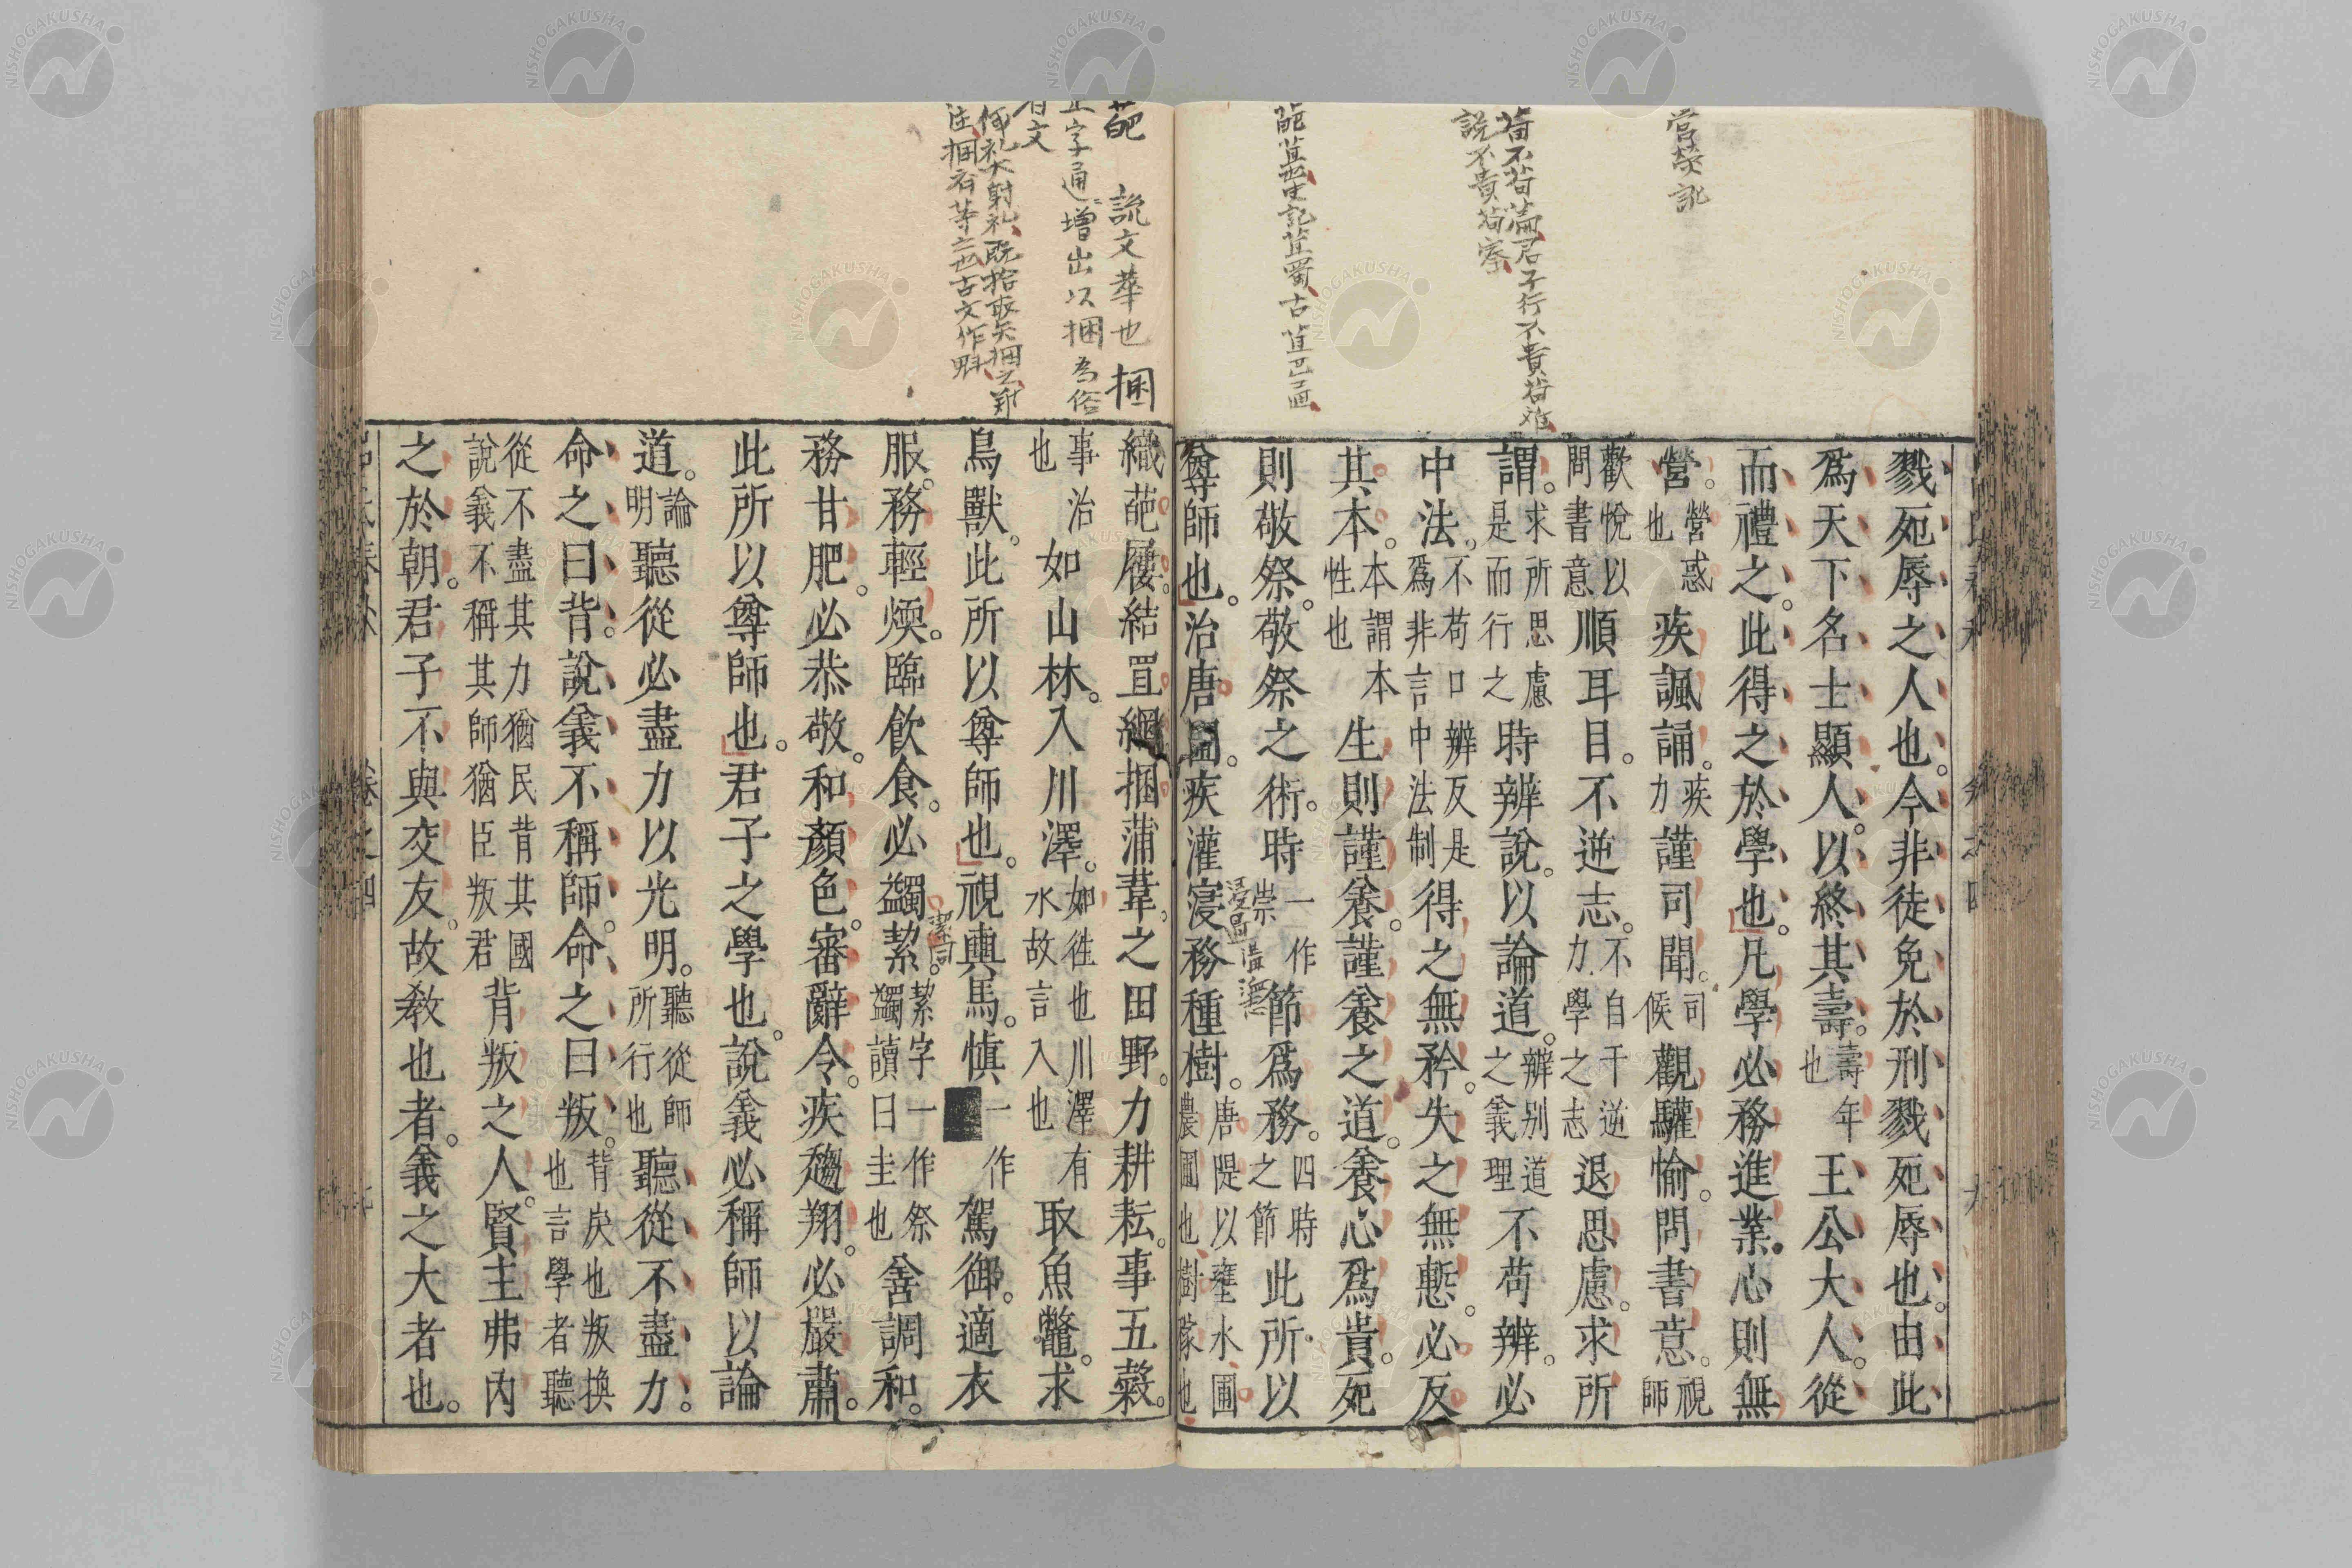 營熒訛
苟不苟篇君子行不貴苟難
說不貴苟察
戮死辱之人也。今非徒免於刑戮死辱也。由此
爲天下名士顯人。以終其壽。壽年也王公大人。從
而禮之。此得之於學也。凡學必務進業。心則無
營。營惑也疾諷誦。疾力謹司聞。司候觀驩愉。問書意。視師
歡悅以問書意順耳目。不逆志。不自干逆力學之志退思慮。求所
謂。求所思慮是而行之時辨說。以論道。辨別道之義理不苟辨。必
中法。不苟口辨反是爲非言中法制得之無矜。失之無慙。必反
其本。本謂本性也生則謹養。謹養之道。養心爲貴。死
則敬祭。敬祭之術。時一作崇節爲務。四時之節此所以
尊師也。治唐圃。疾灌寖務種樹。唐隄以壅水圃農圃也樹稼也
葩 說文華也 捆
正字通增出以捆為俗
儀礼大射礼既拾取矢捆之鄭
注捆齐等之也古文作魁
織葩屨。結罝網。捆蒲葦。之田野。力耕耘。事五穀。
事治也如山林。入川澤。如往也川澤有水故言入也取魚鼈。求
鳥獸。此所以尊師也。視輿馬。愼一作駕御。適衣
服。務輕煗。臨飲食。必蠲絜。絜字一作祭蠲讀曰圭也善調和。
務甘肥。必恭敬。和顏色。審辭令。疾趨翔。必嚴肅。
此所以尊師也。君子之學也。說義必稱師以論
道。論明聽從必盡力以光明。聽從師所行也聽從不盡力。
命之曰背。說義不稱師。命之曰叛。背戾也叛換也言學者聽
從不盡其力猶民背其國說義不稱其師猶臣叛君背叛之人。賢主弗內
之於朝。君子不與交友。故敎也者。義之大者也。